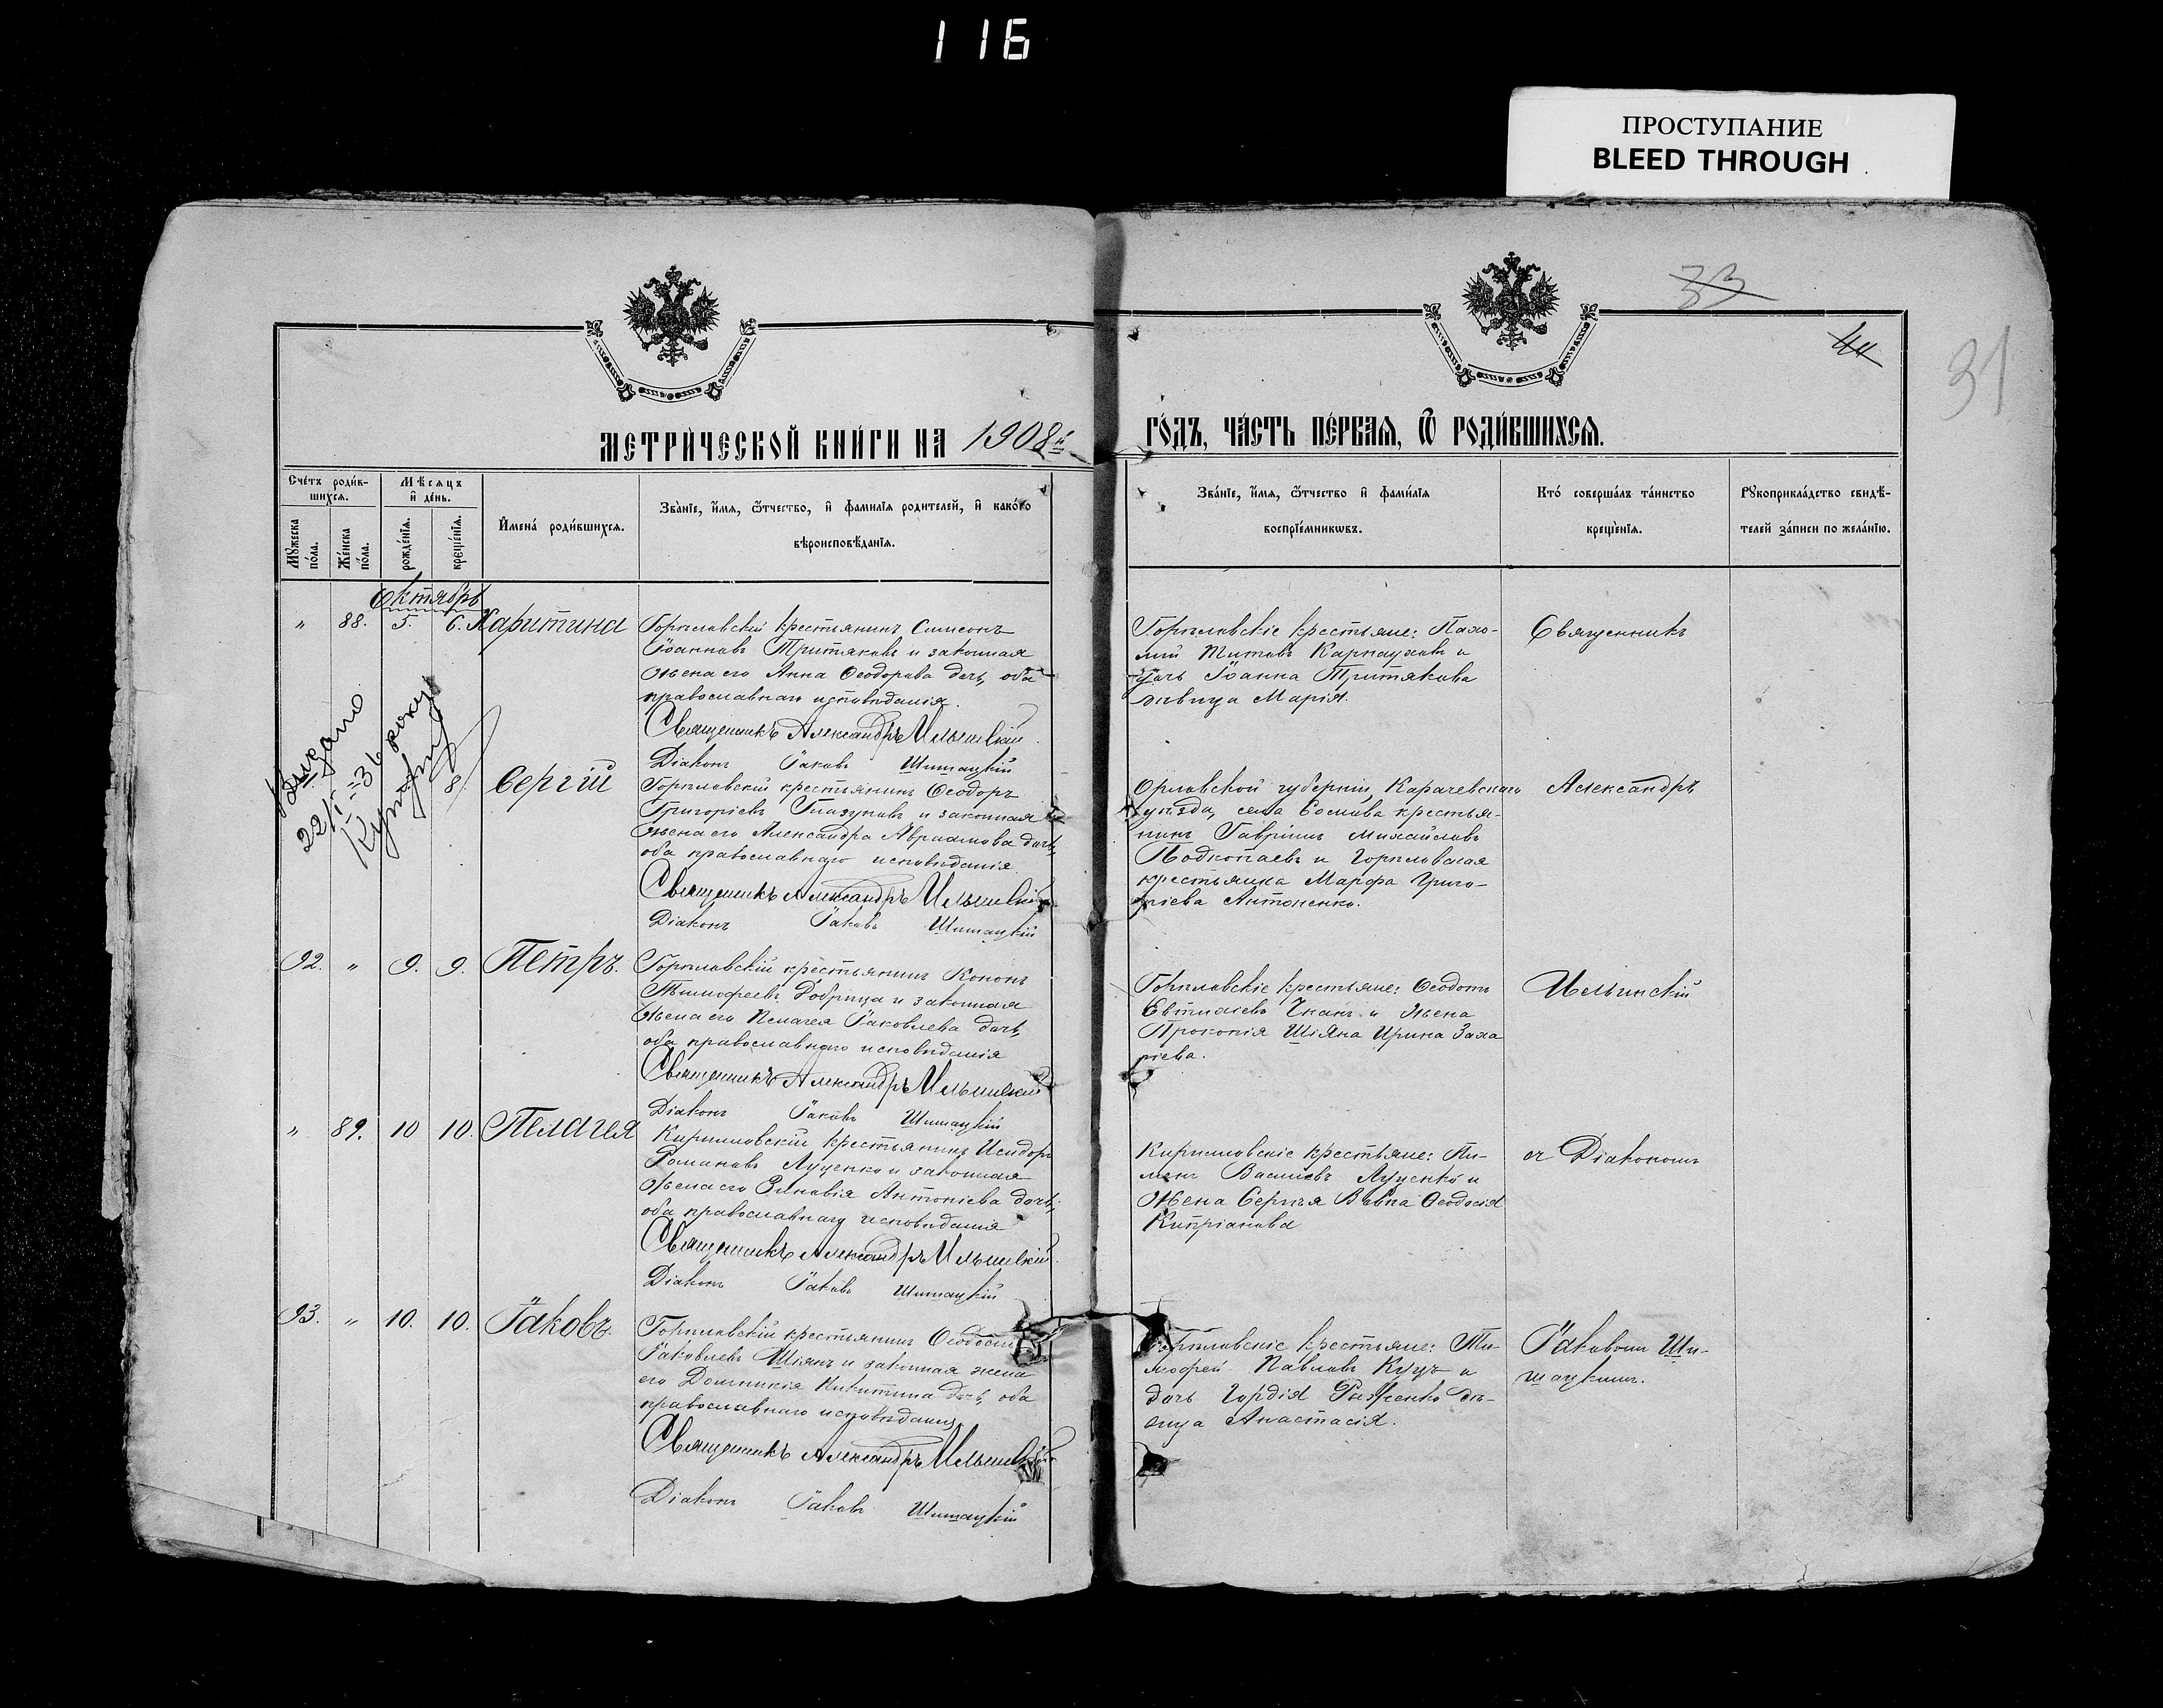 116
ПРОСТУПАНИЕ
BLEED THROUGH
33
44
31
МЕТРИ́ЧЕСКОЙ КНИ́ГИ НА 1908й
ГО́ДЪ, ЧА́СТЬ ПЕ́РВАѦ, Ѿ РОДИ́ВШИХСѦ.
Сче́тъ роди́в-
шихсѧ.
Мꙋ́жеска по́ла.
Же́нска по́ла.
Мѣ́сѧцъ
и҆ де́нь.
рожде́нїѧ.
креще́нїѧ.
И҆мена́ роди́вшихсѧ.
Зва́нїе, и҆́мѧ, ѻ҆́тчество, и҆ фами́лїѧ роди́телей, и҆ како́гѡ
вѣроисповѣ́данїѧ.
Зва́нїе, и҆́мѧ, ѻ҆́тчество и҆ фами́лїѧ
воспрїе́мникѡвъ.
Кто̀ соверша́лъ та́инство
креще́нїѧ.
Рꙋкоприкла́дство свидѣ́-
телей за́писи по жела́нїю.
Октябрь
" 88. 5. 6. Харитина
Горѣловскій крестьянинъ Симеонъ
Іоанновъ Третяковъ и законная
жена его Анна Ѳеодорова дочь, оба
православнаго исповѣданія.
Священникъ Александръ Ильинскій
Діаконъ Іаковъ Шишацкій
Горѣловскіе крестьяне: Пахо-
мій Титовъ Карпауховъ и
дочь Іоанна Третякова
дѣвица Марія.
Священникъ
Видано
22/I-36 року
8. Сергій
Горѣловскій крестьянинъ Ѳеодоръ
Григоріевъ Глазуновъ и законная
жена его Александра Авраамова дочь,
оба православнаго исповѣданія
Священникъ Александръ Ильинскій
Діаконъ Іаковъ Шишацкій
Орловской губерніи, Карачевскаго
уѣзда, села крестья-
нинъ Гавріилъ Михайловъ
Подкопаевъ и Горѣловская
крестьянка Марфа Григо-
ріева Антоненко.
Александръ
92. " 9. 9. Петръ.
Горѣловскій крестьянинъ Кононъ
Тимофеевъ Добрица и законная
жена его Пелагея Іаковлева дочь,
оба православнаго исповѣданія
Священникъ Александръ Ильинскій
Діаконъ Іаковъ Шишацкій
Горѣловскіе крестьяне: Ѳеодотъ
и жена
Прокопія Шіяна Ирина Заха
ріева.
Ильинскій
" 89. 10 10. Пелагея
Кирилловскій крестьянинъ Исидоръ
Романовъ Луценко и законная
жена его Зиновія Антоніева дочь,
оба православнаго исповѣданія
Священникъ Александръ Ильинскій
Діаконъ Іаковъ Шишацкій
Кирилловскіе крестьяне: Пи-
менъ Васильевъ Луценко и
жена Сергѣя Вовка Ѳеодосія
Кипріанова
съ Діакономъ
93. " 10. 10. Іаковъ.
Горѣловскій крестьянинъ Ѳеодосій
Іаковлевъ Шіянъ и законная жена
его Домникія Никитина дочь, оба
православнаго исповѣданія
Священникъ Александръ Ильинскій
Діаконъ Іаковъ Шишацкій
Горѣловскіе крестьяне: Ти-
мофей Павловъ Куцъ и
дочь Гордія дѣ-
вица Анастасія.
Іаковомъ Ши-
шацкимъ.